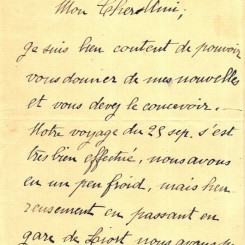 Mon Cher Ami,
Je suis bien content de pouvoir
vous donner de mes nouvelles
et vous devez le concevoir.
Notre voyage du 25 sep. s'est
très bien effectué, nous avons
eu un peu froid, mais heu
reusement en passant en
gare de Niort nous avons